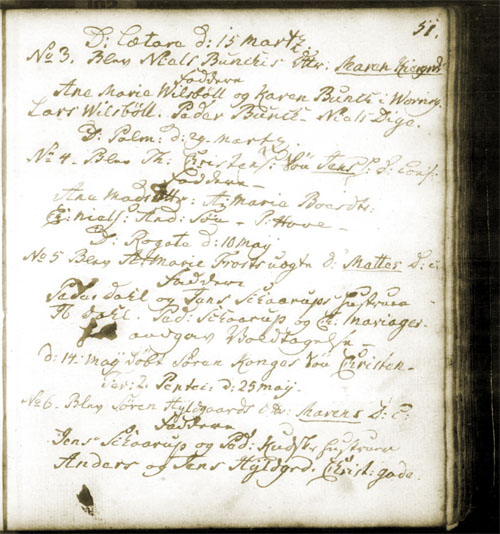 51.
D: Lætare d: 15 Martz
No 3. Blev Niels Bunchis Dttr: Maren
Faddere
Ane Marie Wilsböll og Karen Bunch i
Lars Wilsböll. Peder Bunch - Niels Dige.
D: Palm: d: 29 Martz
No 4 - Blev Th: Christens: Söu Jens D: Conf:
Faddere -
Ane Mads Dttr: A: Marie Boesdtr:
Niels: And: Söu - P: Hove -
D: Rogate d: 10 Maÿ
No 5 Blev A: Marie Frosts uægte d: Mattes D: c:
Faddere
Peder Dahl og Jens Schaarups Hustruer -
Th Dahl. Ped: Schaarup og Chr: Mariager.
aadgav Voldtagelse -
d: 14: Maÿ döbt Sören Kongos Söu Christen -
Fer: 2. Pentec: d: 25 Maÿ.
No 6. Blev Sören Hyldgaards Dtr: Marens D: C:
Faddere
Jens Schaarup og Ped: Hustruer
Anders og Jens Hÿldgrd: Christ: gade.